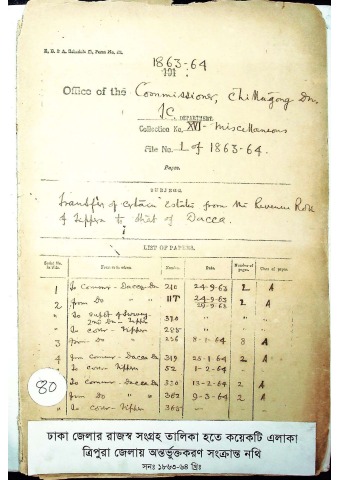 1863-64
191 :
Office of the Commissioner, Chittagong Dn.
IC. DEPARTMENT.
Collection No. XVI - Miscellaneous
File No. 1 of 1863-64.
Papers.
SUBJECT.
Transfer of certain Estates from the Revenue Roll
of Tippera to that of Dacca.
LIST OF PAPERS.
Serial No. Number Date Number of pages. Class of paper.
1 To Commr - Dacca Dn 210 24-9-63 2 A
2 from Do 24-9-63 2 A
To Supdt of Survey 370 " "
To Collr - Tippera 285 " "
3 from Do 256 8-1-64 8 A
4 from Commr - Dacca Dn 319 25-1-64 2 A
To Collr - Tippera 52 1-2-64
To Commr - Dacca Dn 13-2-64 2 A
from Do 362 9-3-64 2 A
To Collr - Tippera 365
80
ঢাকা জেলার রাজস্ব সংগ্রহ তালিকা হতে কয়েকটি এলাকা
ত্রিপুরা জেলায় অন্তর্ভুক্তকরণ সংক্রান্ত নথি
সনঃ ১৮৬৩-৬৪ খ্রিঃ